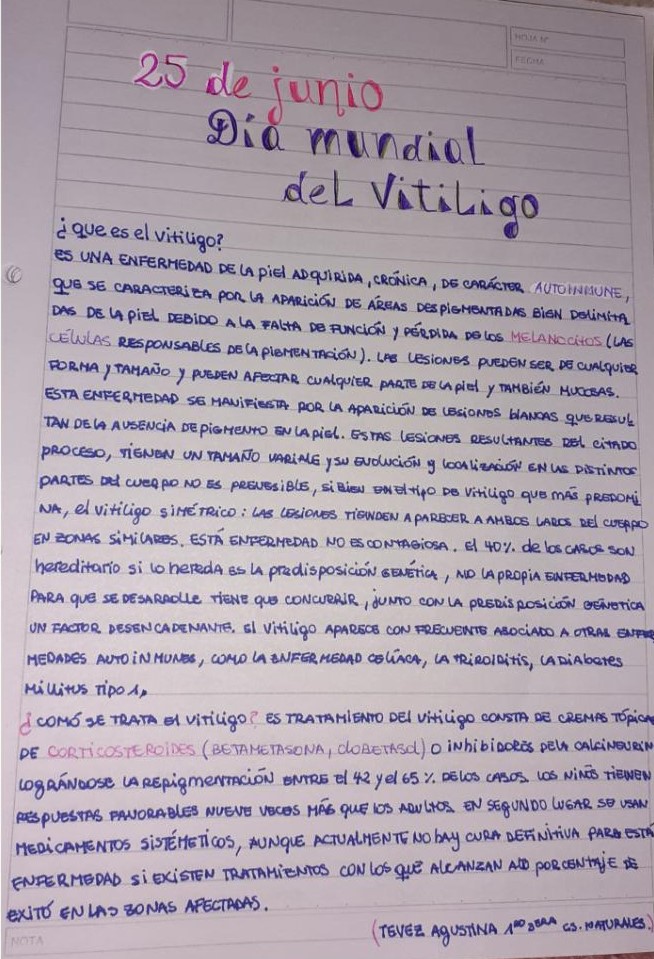 HOJA Nº
FECHA
25 de junio
Día mundial
del Vitiligo
¿que es el vitiligo?
ES UNA ENFERMEDAD DE LA piel ADQUIRIDA, CRÓNICA, DE CARÁCTER AUTOINMUNE,
QUE SE CARACTERIZA POR LA APARICIÓN DE ÁREAS DESPIGMENTADAS BIEN DELIMITA
DAS DE LA PIEL DEBIDO A LA FALTA DE FUNCIÓN y PÉRDIDA DE LOS MELANOCITOS (LAS
CÉLULAS RESPONSABLES DE LA PIGMENTACIÓN). LAS LESIONES PUEDEN SER DE CUALQUIER
FORMA y TAMAÑO y PUEDEN AFECTAR CUALQUIER PARTE DE LA piel y TAMBIÉN MUCOSAS.
ESTA ENFERMEDAD SE MANIFIESTA POR LA APARICIÓN DE LESIONES blANCAS QUE RESUL
TAN DE LA AUSENCIA DE PIGMENTO EN LA PIEL. ESTAS LESIONES RESULTANTES DEL CITADO
PROCESO, TIENEN UN TAMAÑO VARIALE y SU EVOLUCIÓN y LOCALIZACIÓN EN LAS DISTINTAS
PARTES DEL CUERPO NO ES PREVESIBLE, SI BIEN EN El tipo DE Vitiligo QUE MÁS PREDOMI
NA, el vitiligo SIMÉTRICO: LAS LESIONES TIENDEN A PARECER A AMBOS LADOS DEL CUERPO
EN ZONAS SIMILARES. ESTÁ ENFERMEDAD NO ES CONTAGIOSA. El 40% de los CASOS SON
hereditario si lo hereda ES la predisposición GENÉTICA, NO LA PROPIA ENFERMEDAD
PARA QUE SE DESARROLLE TIENE QUE CONCURRIR, JUNTO CON LA PREDISPOSICIÓN GENETICA
UN FACTOR DESENCADENANTE. El Vitiligo APARECE CON FRECUENTE ASOCIADO A OTRAS ENFER
MEDADES AUTOINMUNES, COMO LA ENFERMEDAD CELÍACA, LA TIROIDITIS, LA DIABETES
MILLITUS TIPO 1,
¿COMÓ SE TRATA El VITILIGO? ES TRATAMIENTO DEl VITILIGO CONSTA DE CREMAS TÓPICA
DE CORTICOSTEROIDES (BETAMETASONA, CLOBETASOL) O INHIBIDORES DE LA CALCINEURIN
LOGRÁNDOSE LA REPIGMENTACIÓN ENTRE El 42 y el 65 % DE LOS CASOS. LOS NIÑOS TIENEN
RESPUESTAS FAVORABLES NUEVE VECES MÁS QUE LOS ADULTOS. EN SEGUNDO LUGAR SE USAN
MEDICAMENTOS SISTÉMETICOS, AUNQUE ACTUALMENTE NO HAY CURA DEFINITIVA PARA ESTÁ
ENFERMEDAD SI EXISTEN TRATAMIENTOS CON LOS QUÉ ALCANZAN PORCENTAJE DE
EXITÓ EN LAS ZONAS AFECTADAS.
(TEVEZ AGUSTINA CS. NATURALES.)
NOTA